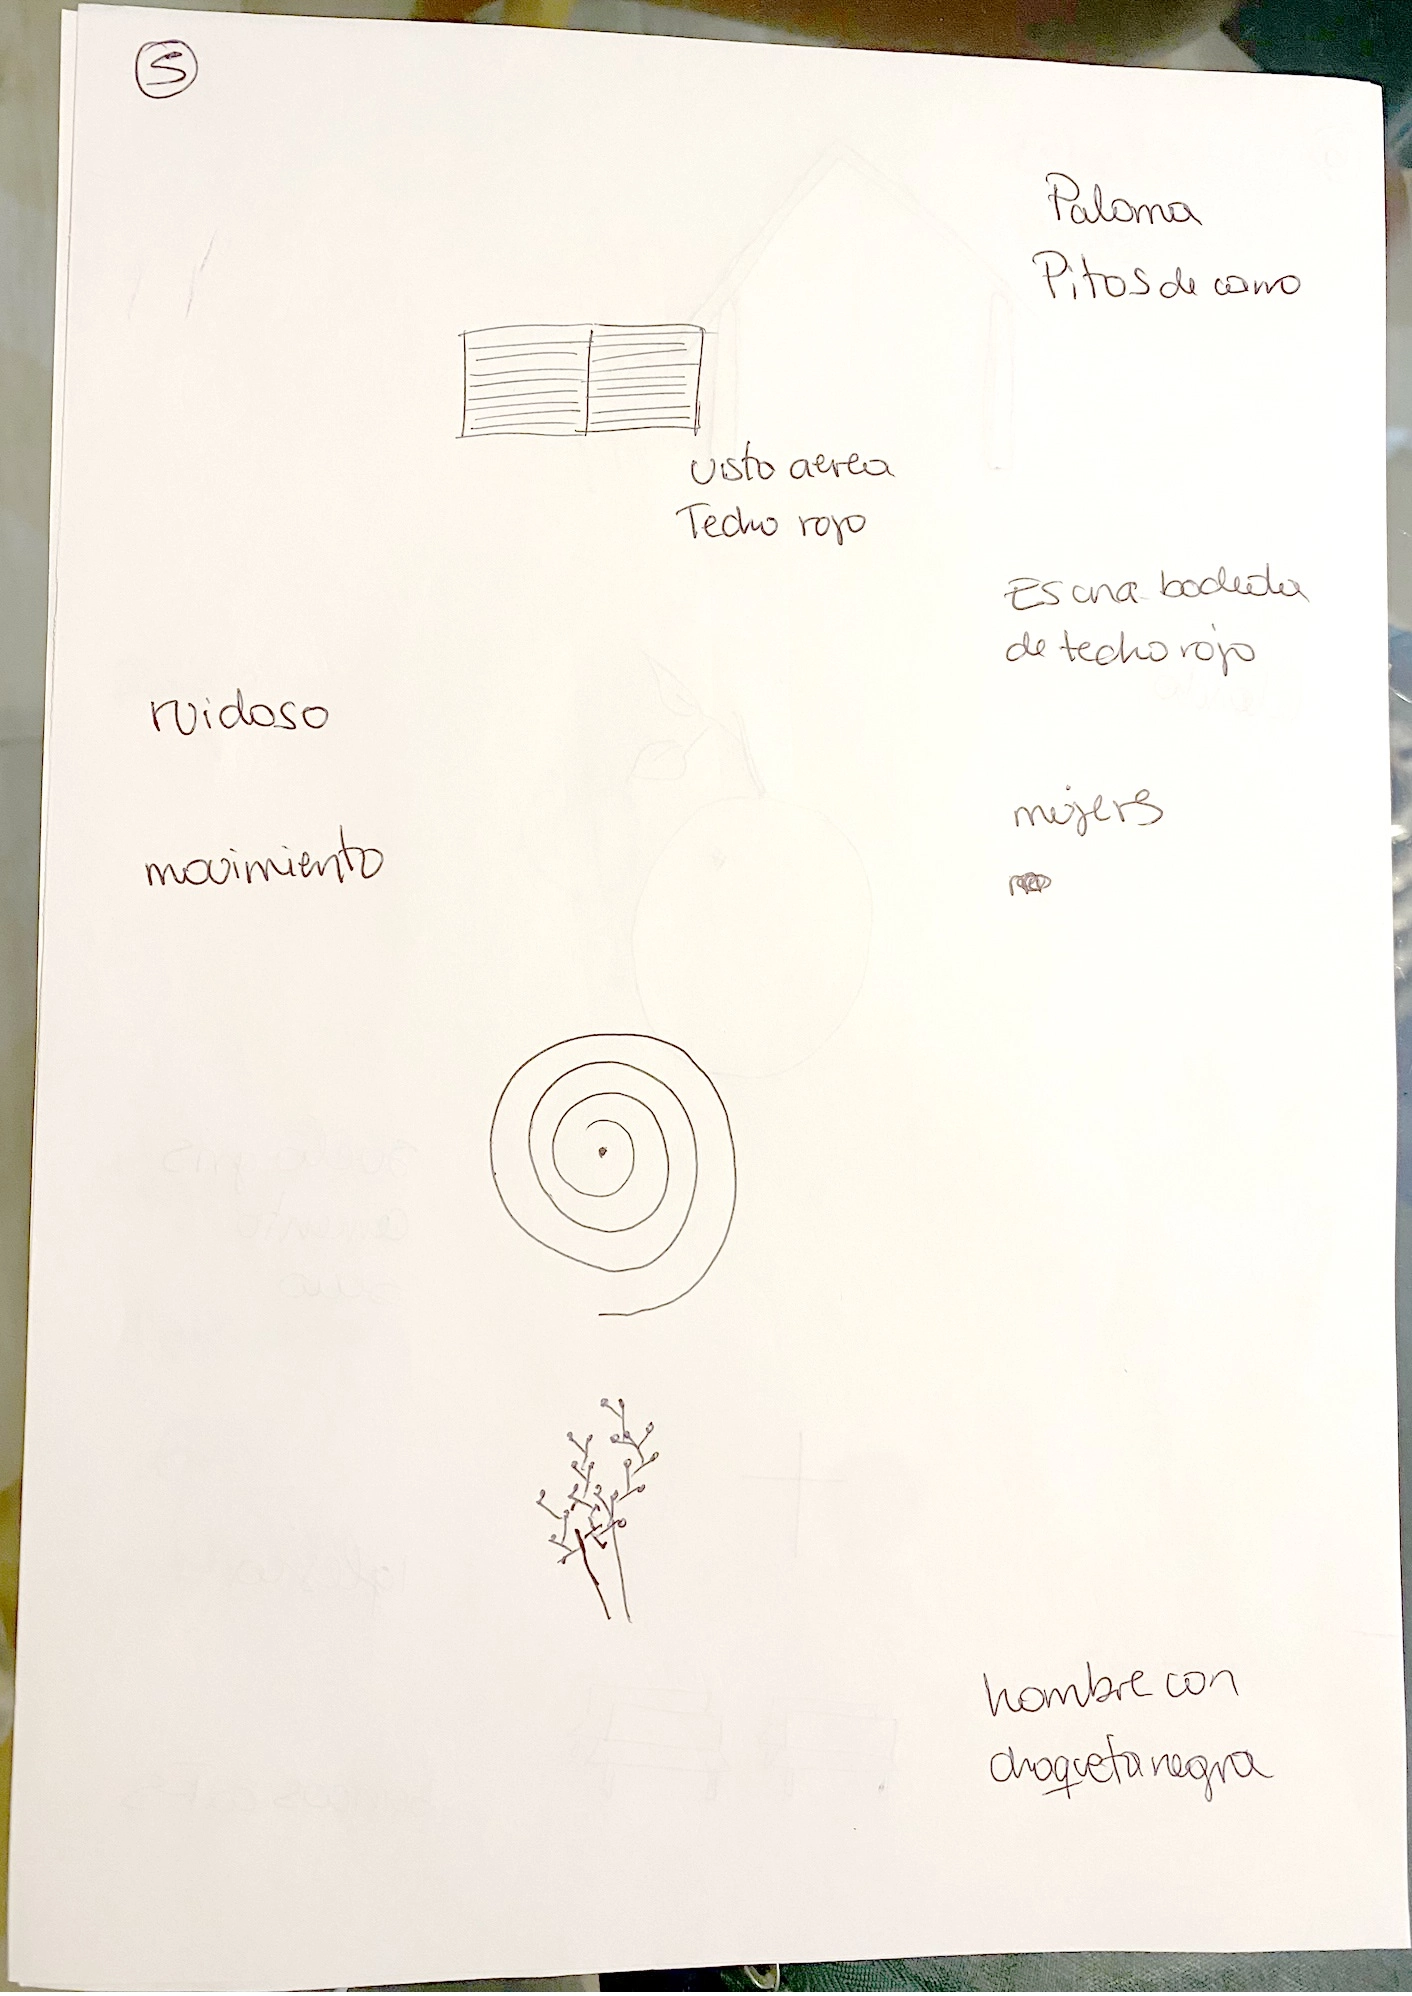 5
Paloma
Pitos de carro
vista aerea
Techo rojo
Es una bodeda
de techo rojo
ruidoso
mujers
movimiento
hombre con
chaqueta negra